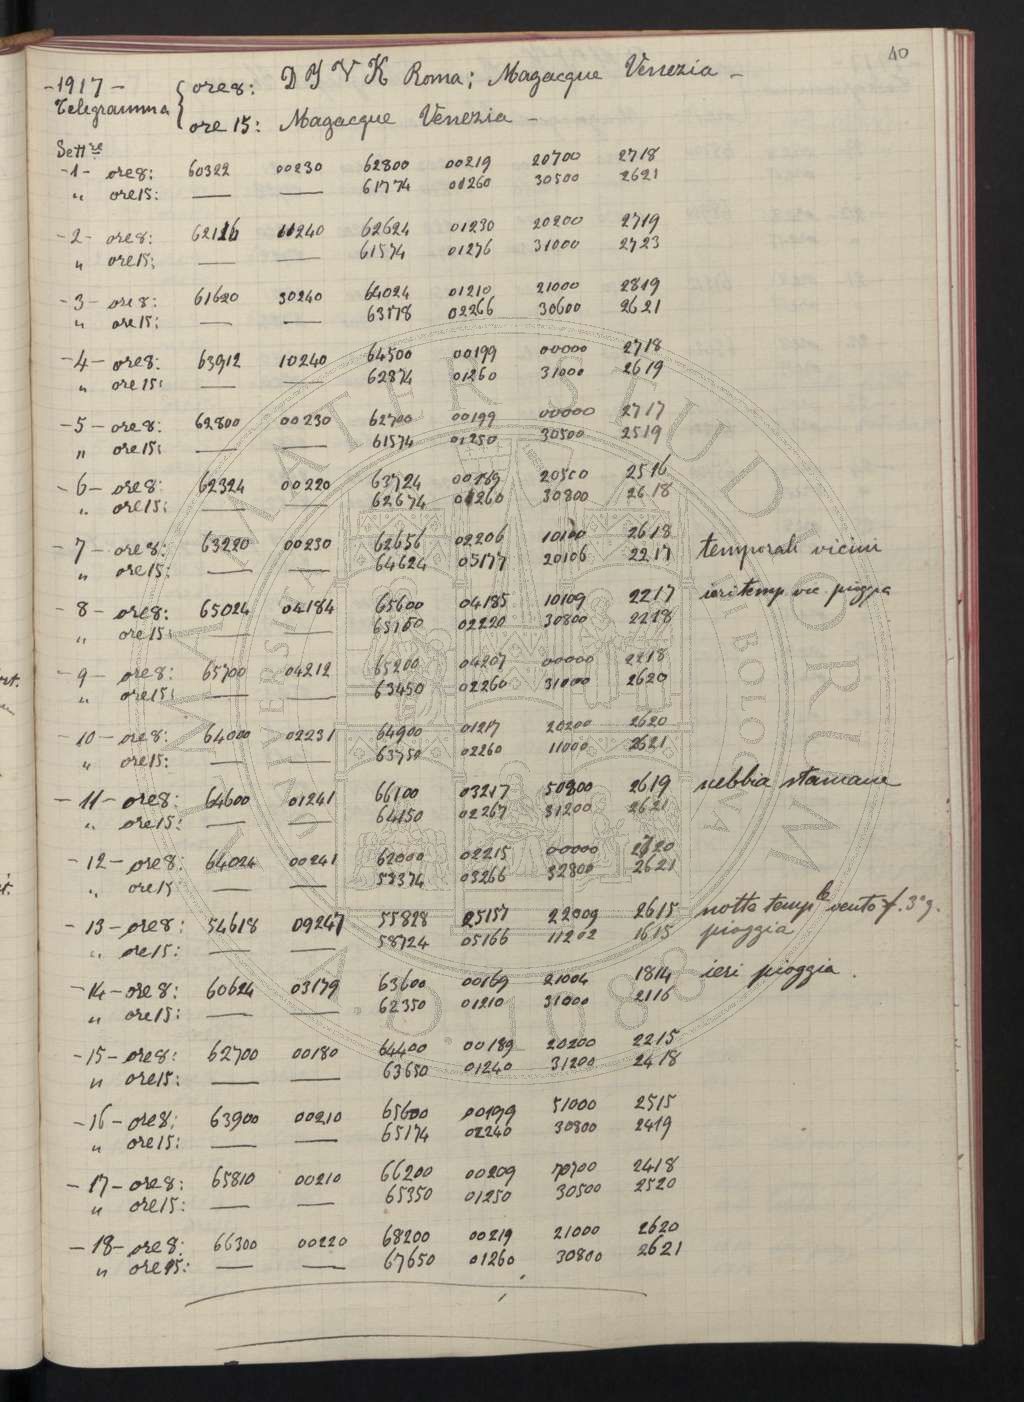 10
-1917- ore 8: D Y V K Roma; Magacque Venezia -
Telegramma ore 15: Magacque Venezia -
Settre
-1- ore 8: 60322 00230 62800 00219 20700 2718
" ore 15: — — 61774 01260 30500 2621
-2- ore 8: 62126 11240 62624 01230 20200 2719
" ore 15: — — 61574 01276 31000 2723
-3- ore 8: 61620 30240 64024 01210 21000 2819
" ore 15: — — 63178 02266 30600 2621
-4- ore 8: 63912 10240 64500 00199 00000 2718
" ore 15: — — 62874 01260 31000 2619
-5- ore 8: 62800 00230 62700 00199 00000 2717
" ore 15: — — 61574 01250 30500 2519
-6- ore 8: 62324 00220 63724 00189 20500 2516
" ore 15: — — 62674 01260 30800 2618
-7- ore 8: 63220 00230 62656 02206 10100 2618 temporali vicini
" ore 15: — — 64624 05177 20106 2217
-8- ore 8: 65024 04184 65600 04185 10109 2217 ieri temp. vic. pioggia
" ore 15: — — 65150 02220 30800 2218
-9- ore 8: 65700 04212 65200 04207 00000 2218
" ore 15: — — 63450 02260 31000 2620
-10- ore 8: 64000 02231 64900 01217 20200 2620
" ore 15: — — 63750 02260 11000 2621
-11- ore 8: 64600 01241 66100 03217 50800 2619 nebbia stamane
" ore 15: — — 64150 02267 31200 2621
-12- ore 8: 64024 00241 62000 02215 00000 2720
" ore 15 — — 59374 03266 32800 2621
-13- ore 8: 54618 09247 55828 25157 22009 2615 notte temple vento f. 3°g.
" ore 15: — — 58724 05166 11202 1615 pioggia
-14- ore 8: 60624 03179 63600 00169 21004 1814 ieri pioggia.
" ore 15: — — 62350 01210 31000 2116
-15- ore 8: 62700 00180 64400 00189 20200 2215
" ore 15: — — 63650 01240 31200 2418
-16- ore 8: 63900 00210 65600 00199 51000 2515
" ore 15: — — 65174 02240 30800 2419
-17- ore 8: 65810 00210 66200 00209 70700 2418
" ore 15: — — 65350 01250 30500 2520
-18- ore 8: 66300 00220 68200 00219 21000 2620
" ore 15: — — 67650 01260 30800 2621
ALMA MATER STUDIORUM
A.D. 1088